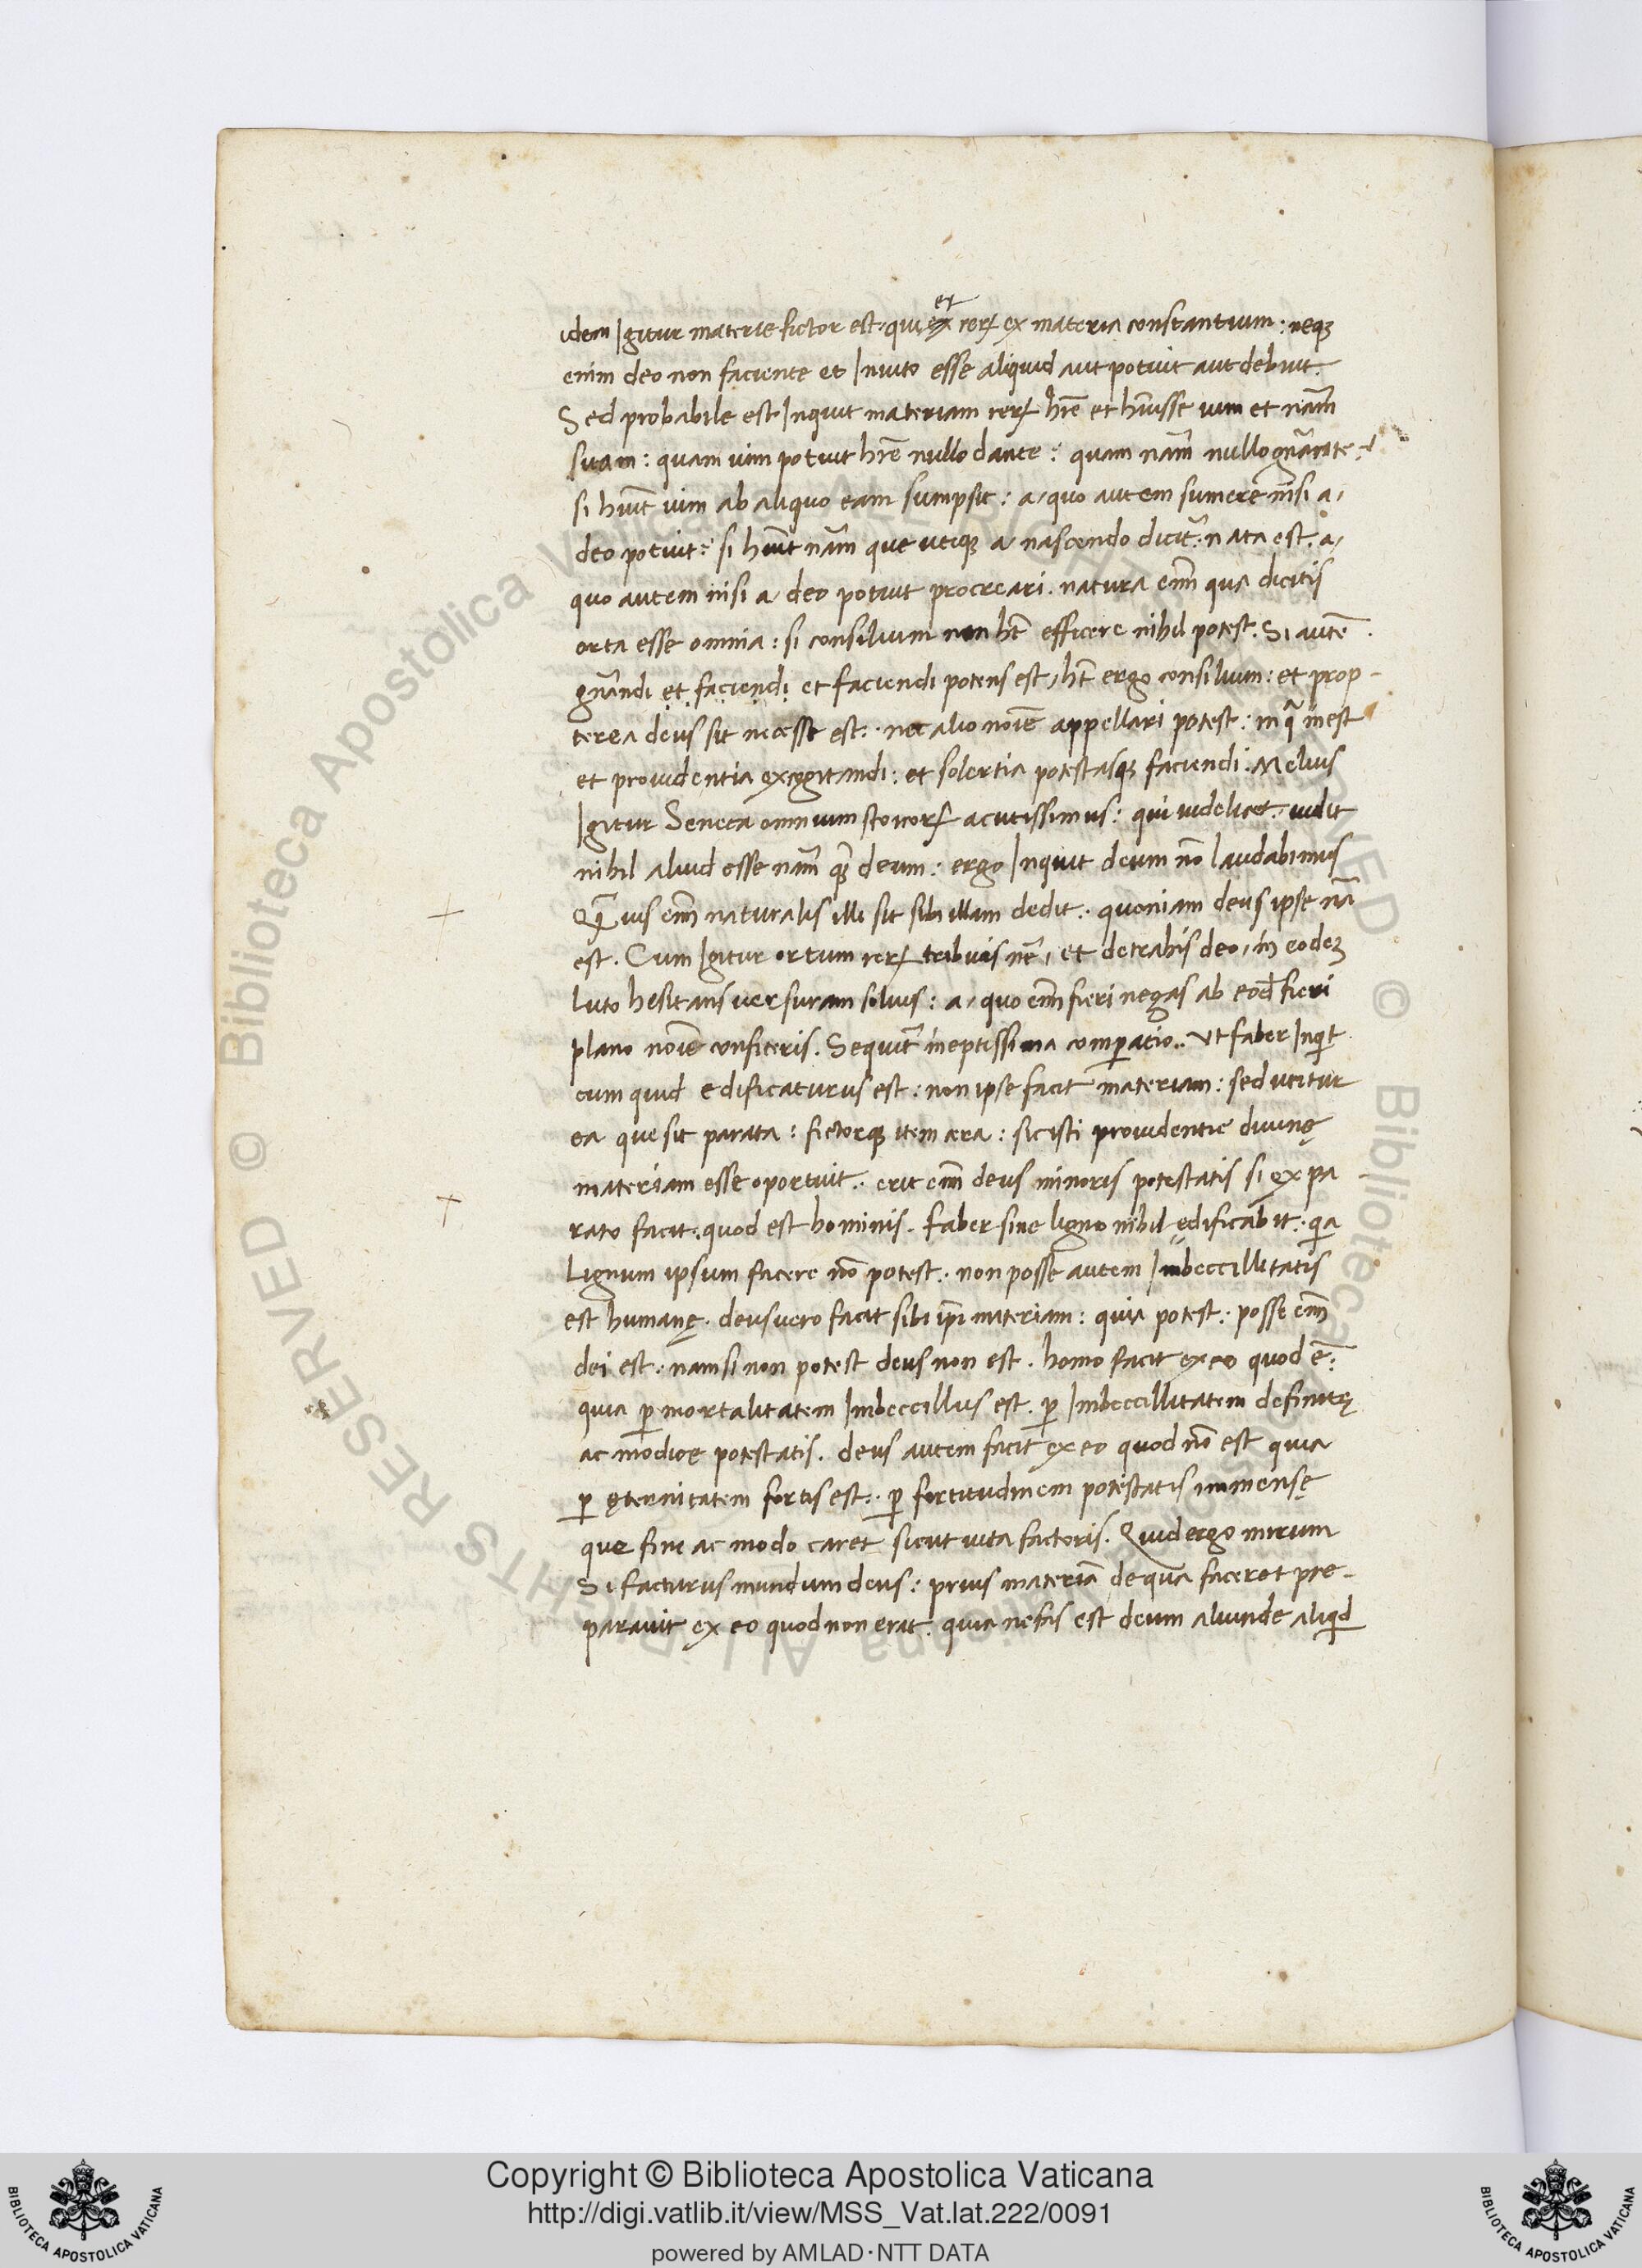 et
idem Igitur materie fictor est. qui ex reꝝ ex materia constantium: neqꝫ
enim deo non faciente et Inuito esse aliquid aut potuit aut debuit.
Sed probabile est Inquit materiam reꝝ hr̃e et hũisse uim et nãm
suam: quam uim potuit hr̃e nullo dante: quam nãm nullo gñante?
si hũit uim ab aliquo eam sumpsit: a quo autem sumere nisi a
deo potuit? si hũit nãm que utiqꝫ a nascendo dicit̃. nata est. a
quo autem nisi a deo potuit procreari. natura em̃ qua dicitis
orta esse omnia: si consilium non ht̃ efficere nihil potest. Si autẽ
gñandi et faciendi et faciendi potens est, ht̃ ergo consilium: et prop-
terea deus sit necesse est. nec alio noiẽ appellari potest: in q̃ inest
et prouidentia excogitandi: et solertia potestasqꝫ faciendi. Melius
Igitur Seneca omnium stoicoꝝ acutissimus: qui uidelicet uidit
nihil aliud esse nãm q̃ꝫ deum: ergo Inquit deum nõ laudabimus
Q̃ uis em̃ naturalis illi sit sibi illam dedit. quoniam deus ipse nã
est. Cum Igitur ortum reꝝ tribuis nẽ, et detrahis deo, in eodeꝫ
luto hesitans uersuram soluis: a quo em̃ fieri negas ab eod̃ fieri
plano noiẽ confiteris. Sequit̃ ineptissima comꝑatio. Vt faber Inqit
cum quid edificaturus est: non ipse facit materiam: sed utitur
ea que sit parata: fictorqꝫ item cera: sic isti prouidentie diuinę
materiam esse oportuit. erit em̃ deus minoris potestatis si ex pa
rato facit. quod est hominis. faber sine ligno nihil edificabit. qa
Lignum ipsum facere nõ potest. non posse autem Imbeccillitatis
est humanę. deus uero facit sibi ip̃i materiam: quia potest. posse em̃
dei est. nam si non potest deus non est. homo facit ex eo quod ẽ:
quia ꝑ mortalitatem Imbeccillus est. ꝑ Imbeccillitatem definitę
ac modice potestatis. deus autem facit ex eo quod nõ est quia
ꝑ ęternitatem fortis est. ꝑ fortitudinem potestatis immensę
que fine ac modo caret sicut uita factoris. Quid ergo mirum
Si facturus mundum deus: prius materiã de qua faceret pre-
parauit ex eo quod non erat. quia nefas est deum aliunde aliqd
© Biblioteca Apostolica Vaticana ALL RIGHTS RESERVED © Biblioteca Apostolica Vaticana ALL RIGHTS RESERVED
Copyright © Biblioteca Apostolica Vaticana
http://digi.vatlib.it/view/MSS_Vat.lat.222/0091
powered by AMLAD·NTT DATA
BIBLIOTECA APOSTOLICA VATICANA
BIBLIOTECA APOSTOLICA VATICANA